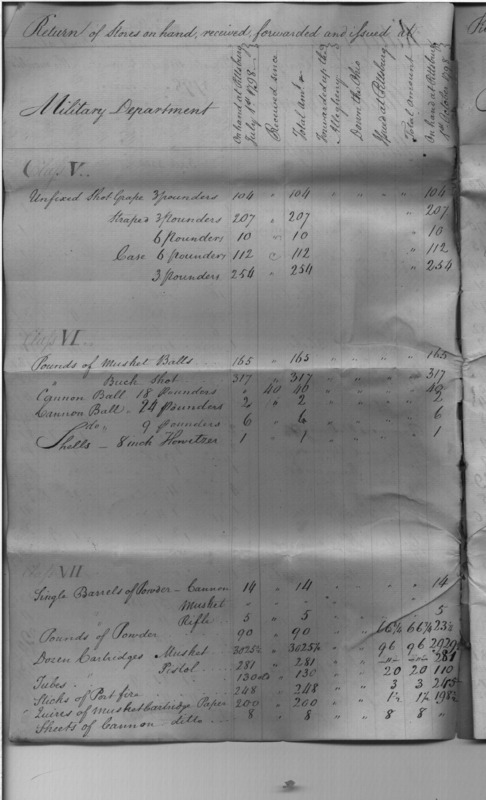 Return of Stores on hand, received, forwarded and issued at
Military Department
On hand at Pittsburg July 1st 1798
Received since
Total amt
Forwarded up the Allegheny
Down the Ohio
Issued at Pittsburg
Total amount
On hand at Pittsburg 1st October 1798
Class V
Unfixed Shot Grape 3 pounders 104 " 104 " " " " 104
Straped 3 Pounders 207 " 207 " 207
6 Pounders 10 " 10 " 10
Case 6 Pounders 112 " 112 " 112
3 Pounders 254 " 254 " 254
Class VI
Pounds of Musket Balls 165 " 165 " " " " 165
" Buck Shot 317 " 317 " " " " 317
Cannon Ball 18 Pounders " 40 40 " " " " 40
Cannon Ball 24 Pounders 2 " 2 " " " " 2
do 9 Pounders 6 " 6 " " " " 6
Shells - 8 inch Howitzer 1 " 1 " " " " 1
Class VII
Single Barrels of Powder - Cannon 14 " 14 " " " " 14
Musket " " " " " " "
Rifle 5 " 5 " " " " 5
Pounds of Powder 90 " 90 " " 66¼ 66¼ 23¾
Dozen Cartridges Musket 3025¼ " 3025¼ " " 96 96
Pistol 281 " 281 " " 281
Tubes 130 " 130 " " 20 20 110
Sticks of Port fire 248 " 248 " " 3 3 245
Quires of Musket Cartridge Paper 200 " 200 " "
Sheets of Cannon ditto 8 " 8 " " 8 8 "